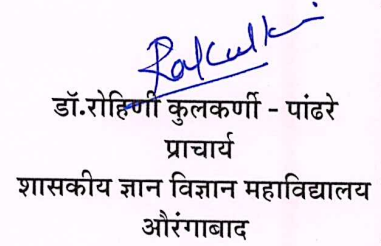 डॉ.रोहिणी कुलकर्णी - पांढरे
प्राचार्य
शासकीय ज्ञान विज्ञान महाविद्यालय
औरंगाबाद